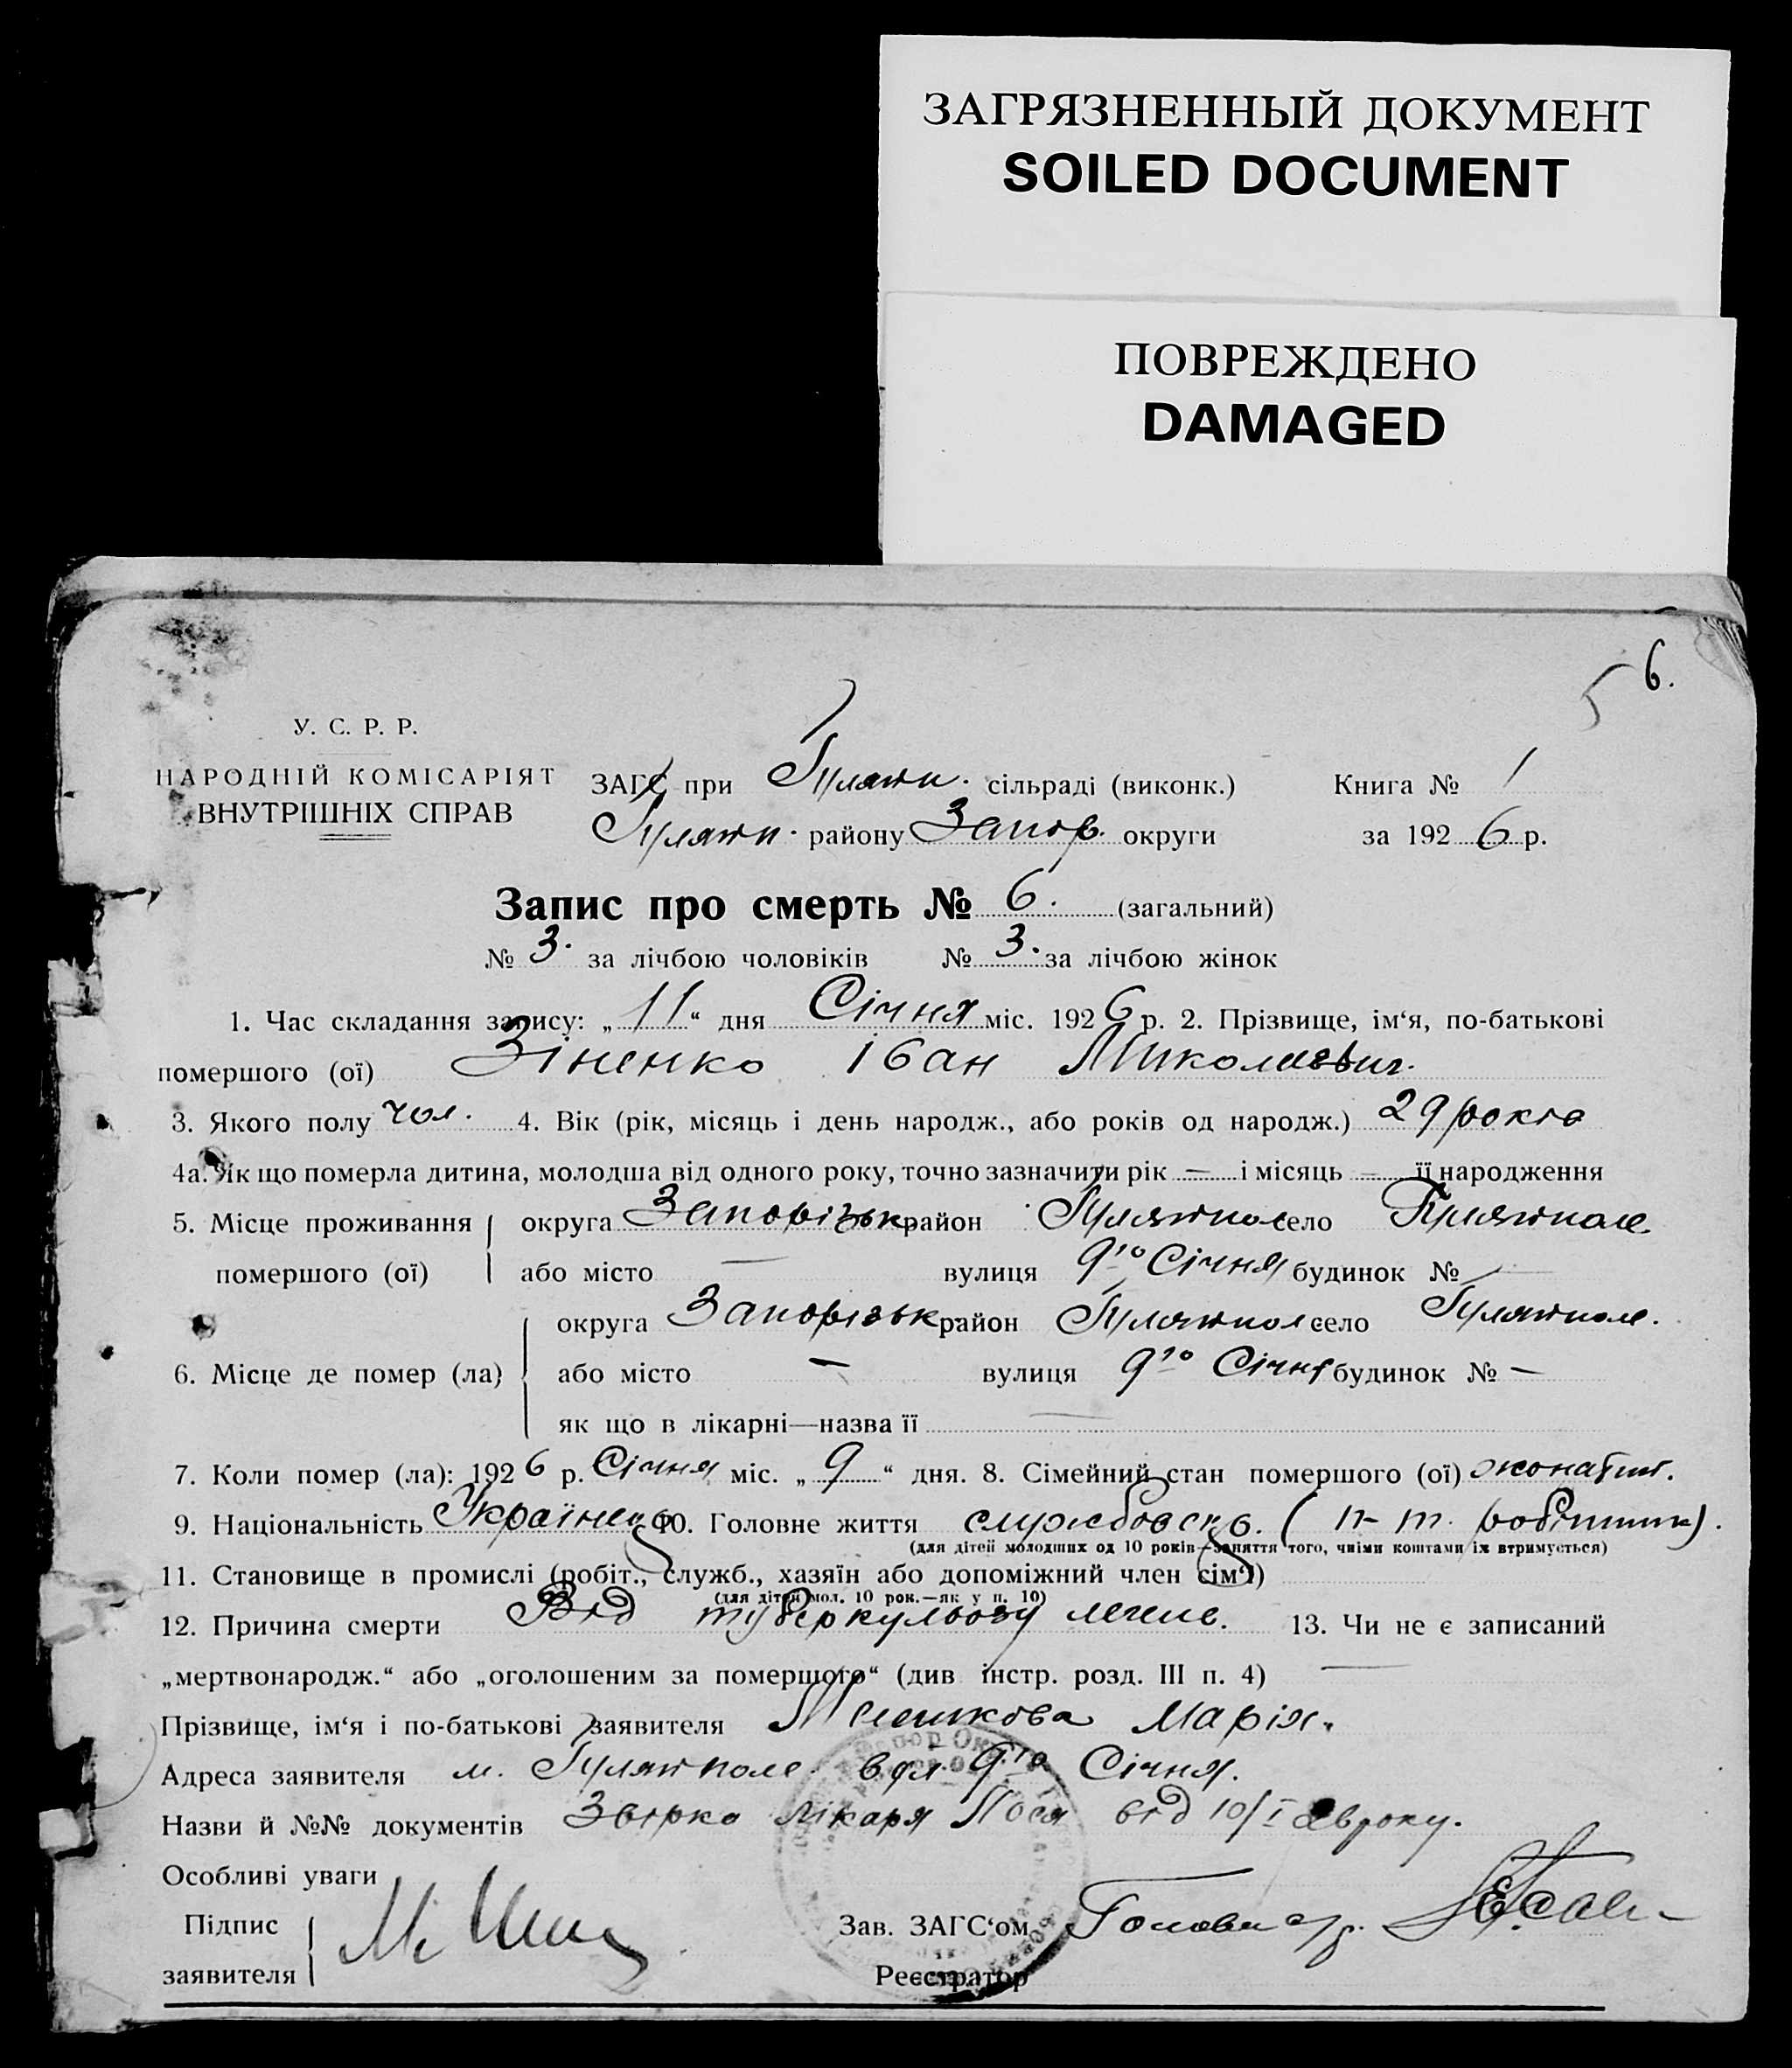 ЗАГРЯЗНЕННЫЙ ДОКУМЕНТ
SOILED DOCUMENT
ПОВРЕЖДЕНО
DAMAGED
5 6.
У. С. Р. Р.
НАРОДНІЙ КОМІСАРІЯТ
ВНУТРІШНІХ СПРАВ
ЗАГС при Гуляйп. сільраді (виконк.) Книга № 1
Гуляйп. району Запор. округи за 1926 р.
Запис про смерть № 6. (загальний)
№ 3. за лічбою чоловіків № 3. за лічбою жінок
1. Час складання запису: „11“ дня Січня міс. 1926 р. 2. Прізвище, ім‘я, по-батькові
помершого (ої) Зіненко Іван Миколаєвич.
3. Якого полу чол. 4. Вік (рік, місяць і день народж., або років од народж.) 29 років
4а. Як що померла дитина, молодша від одного року, точно зазначити рік — і місяць — її народження
5. Місце проживання округа Запорізьк район Гуляйпол село Гуляйполе
помершого (ої) або місто — вулиця 9го Січня будинок № —
округа Запорізьк район Гуляйпол село Гуляйполе.
6. Місце де помер (ла) або місто — вулиця 9го Січня будинок № —
як що в лікарні—назва її —
7. Коли помер (ла): 1926 р. Січня міс. „9“ дня. 8. Сімейний стан помершого (ої) жонатий.
9. Національність Українець 10. Головне життя службовець. (п-т. робітник).
(для дітей молодших од 10 років—заняття того, чиїми коштами їх втримується)
11. Становище в промислі (робіт., служб., хазяїн або допоміжний член сім‘ї)
(для дітей мол. 10 рок.—як у п. 10)
12. Причина смерти Від туберкульозу легень. 13. Чи не є записаний
„мертвонародж.“ або „оголошеним за помершого“ (див інстр. розд. III п. 4) —
Прізвище, ім‘я і по-батькові заявителя Марія.
Адреса заявителя м. Гуляйполе вул. 9го Січня.
Назви й №№ документів лікаря від 10/I 26 року.
Особливі уваги
Підпис
заявителя
Зав. ЗАГС‘ом Голова с/р.
Реєстратор